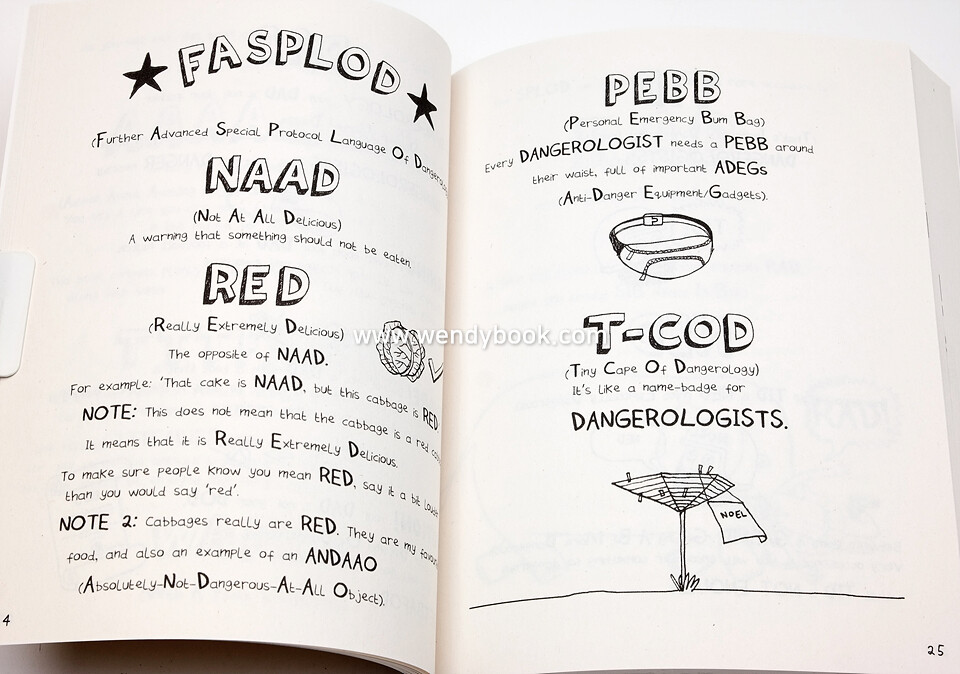 FASPLOD
(Further Advanced Special Protocol Language Of
NAAD
(Not At All Delicious)
A warning that something should not be eaten.
RED
(Really Extremely Delicious)
The opposite of NAAD.
For example: 'That cake is NAAD, but this cabbage is RED
NOTE: This does not mean that the cabbage is a red
It means that it is Really Extremely Delicious.
To make sure people know you mean RED, say it a bit
than you would say 'red'.
NOTE 2: Cabbages really are RED. They are my
food, and also an example of an ANDAAO
(Absolutely-Not-Dangerous-At-All Object).
4
PEBB
(Personal Emergency Bum Bag)
Every DANGEROLOGIST needs a PEBB around
their waist, full of important ADEGs
(Anti-Danger Equipment/Gadgets).
T-COD
(Tiny Cape Of Dangerology)
It's like a name-badge for
DANGEROLOGISTS.
NOEL
25
www.wendybook.com